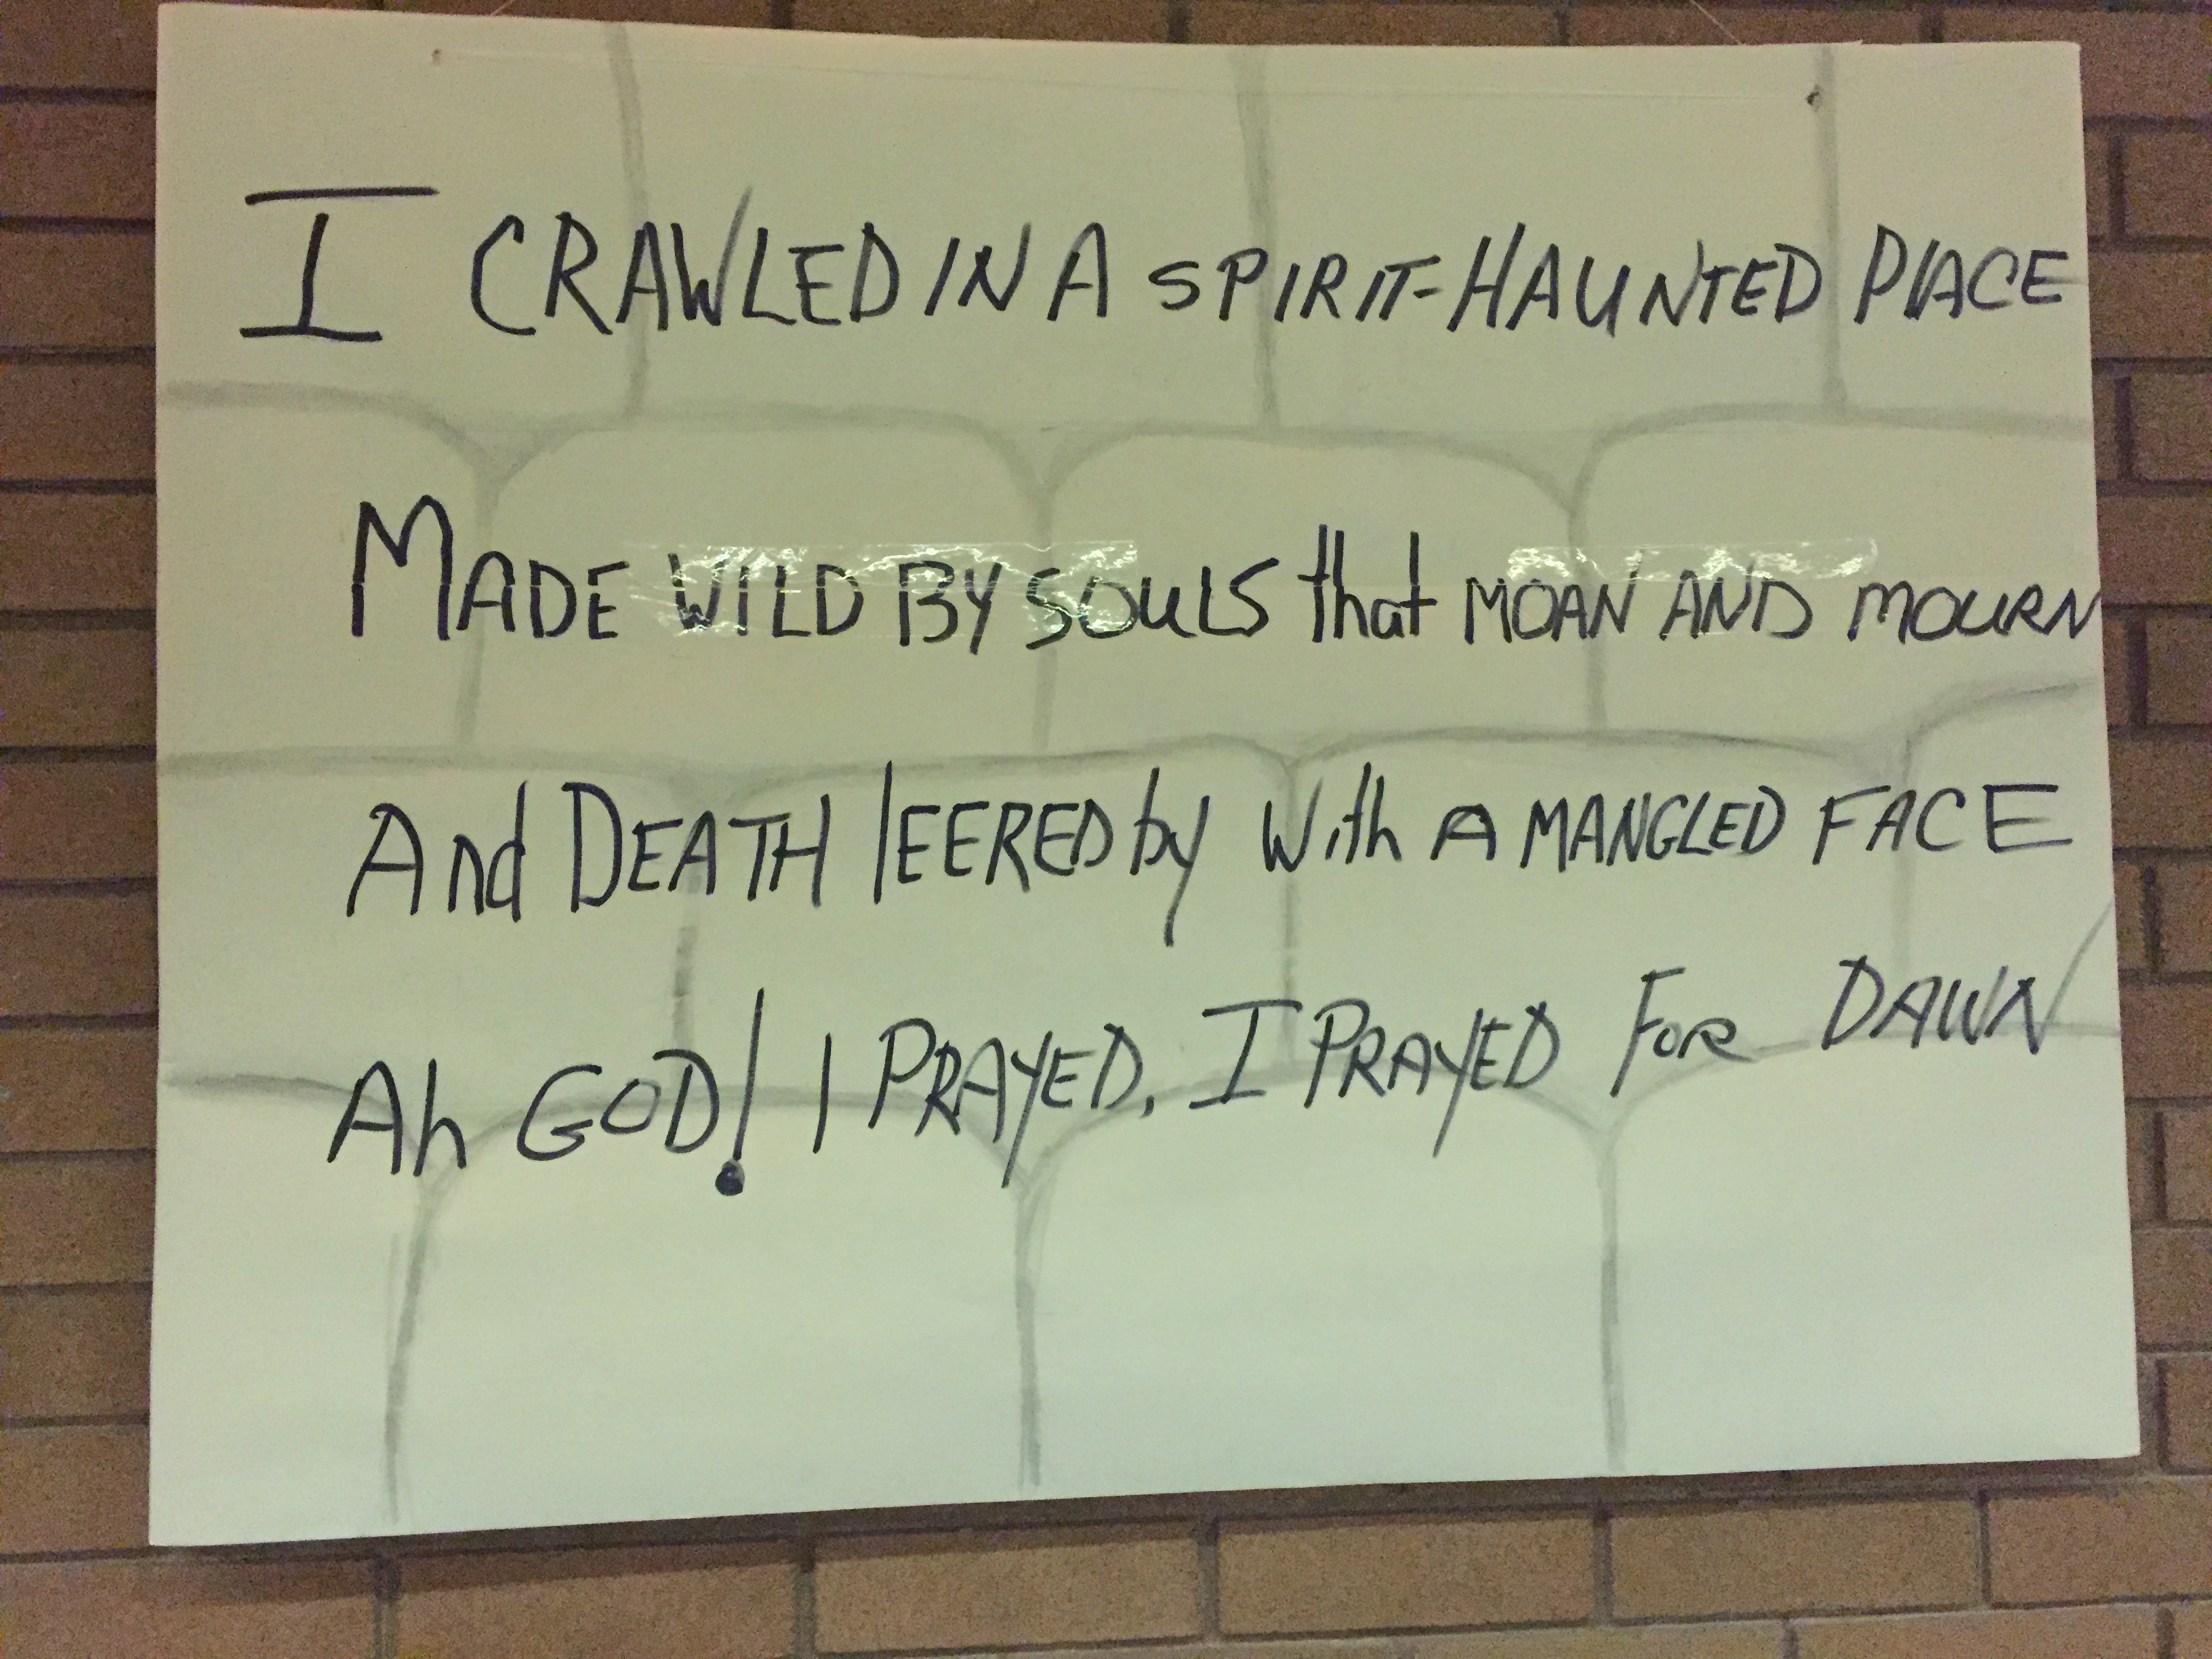 I CRAWLED IN A SPIRIT-HAUNTED PlACE
MADE WILD BY SOULS that MOAN AND MOURN
And DEATH lEERED by With A MANGLED FACE
Ah GOD! I PRAYED, I PRAYED FOR DAWN